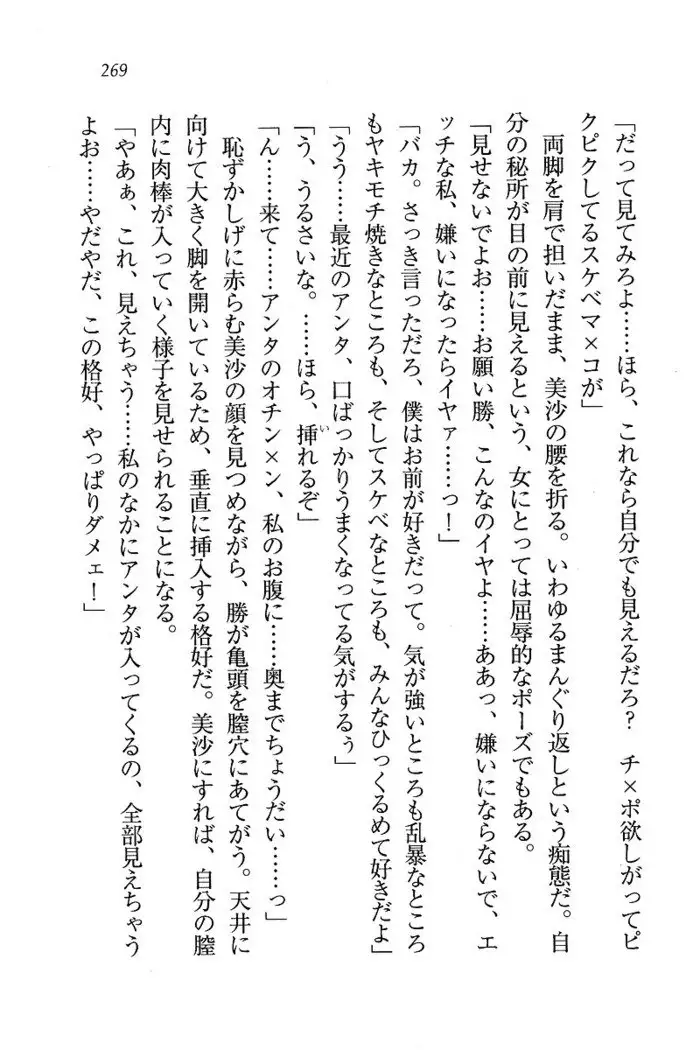 269
「だって見てみろよ……ほら、これなら自分でも見えるだろ？　チ×ポ欲しがってピ
クピクしてるスケベマ×コが」
両脚を肩で担いだまま、美沙の腰を折る。いわゆるまんぐり返しという痴態だ。自
分の秘所が目の前に見えるという、女にとっては屈辱的なポーズでもある。
「見せないでよお……お願い勝、こんなのイヤよ……ああっ、嫌いにならないで、エ
ッチな私、嫌いになったらイヤァ……っ！」
「バカ。さっき言っただろ、僕はお前が好きだって。気が強いところも乱暴なところ
もヤキモチ焼きなところも、そしてスケベなところも、みんなひっくるめて好きだよ」
「うう……最近のアンタ、口ばっかりうまくなってる気がするぅ」
「う、うるさいな。……ほら、挿れるぞ」
「ん……来て……アンタのオチン×ン、私のお腹に……奥までちょうだい……っ」
恥ずかしげに赤らむ美沙の顔を見つめながら、勝が亀頭を膣穴にあてがう。天井に
向けて大きく脚を開いているため、垂直に挿入する格好だ。美沙にすれば、自分の膣
内に肉棒が入っていく様子を見せられることになる。
「やあぁ、これ、見えちゃう……私のなかにアンタが入ってくるの、全部見えちゃう
よお……やだやだ、この格好、やっぱりダメェ！」